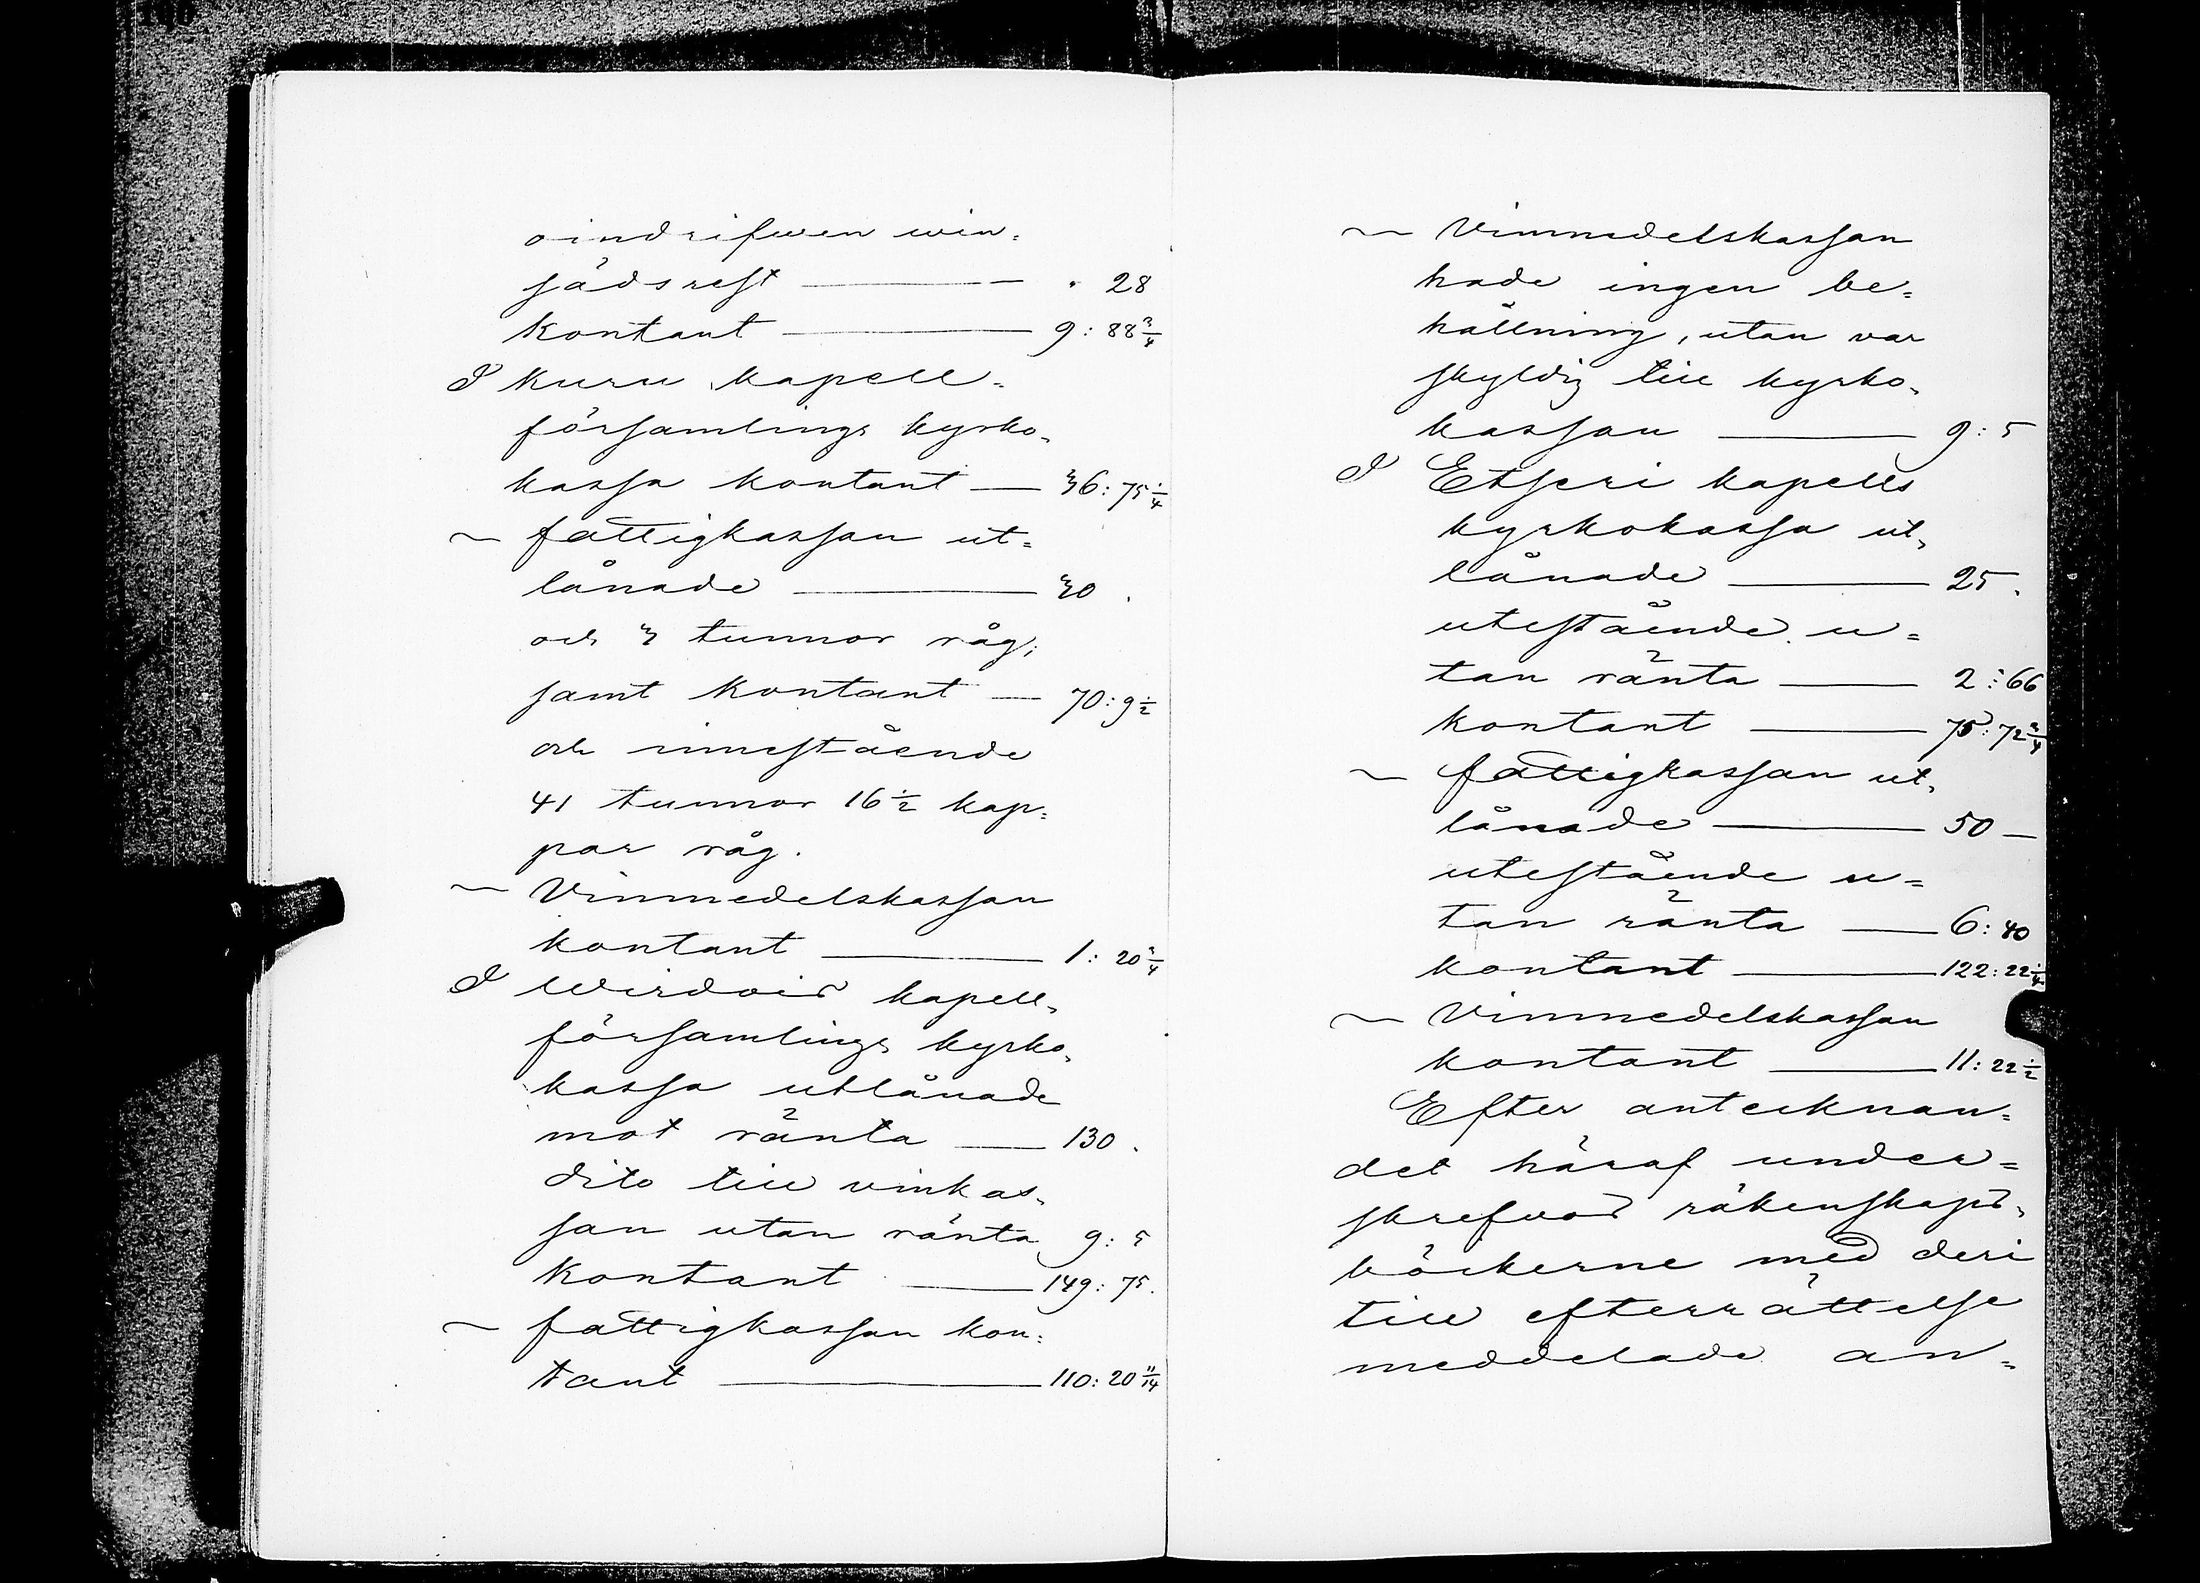 oindrifwen win-
sädsrest — " 28
kontant — 9: 88 3/4
I Kuru kapell-
församlings kyrko-
kassa kontant — 36: 75 1/4
~ fattigkassan ut-
lånade — 30.
och 3 tunnor råg;
samt kontant — 70: 9 1/2
och innestående
41 tunnor 16 1/2 kap-
par råg.
~ Vinmedelskassan
kontant — 1: 20 3/4
I Wirdois kapell-
församlings kyrko-
kassa utlånade
mot ränta — 130.
dito till vinkas-
san utan ränta 9: 5
kontant — 149: 75.
~ fattigkassan kon-
tant — 110: 20 11/14
~ Vinmedelskassan
hade ingen be-
hållning, utan var
skyldig till kyrko-
kassan — 9: 5
I Etseri kapells
kyrkokassa ut-
lånade — 25.
utestående u-
tan ränta — 2: 66
kontant — 75: 72 3/4
~ fattigkassan ut-
lånade — 50 —
utestående u-
tan ränta — 6: 40
kontant — 122: 22 1/4
~ Vinmedelskassan
kontant — 11: 22 1/2
Efter antecknan-
det häraf under-
skrefvos räkenskaps-
böckerne med deri
till efterrättelse
meddelade an-